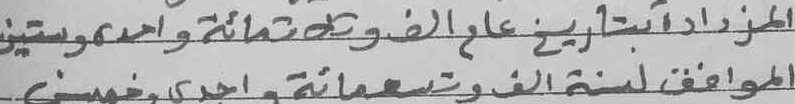 المزداد بتاريخ عام الف وثلاثمائة واحدى وستين
الموافق لسنة الف وتسعمائة واحدى وخمسين